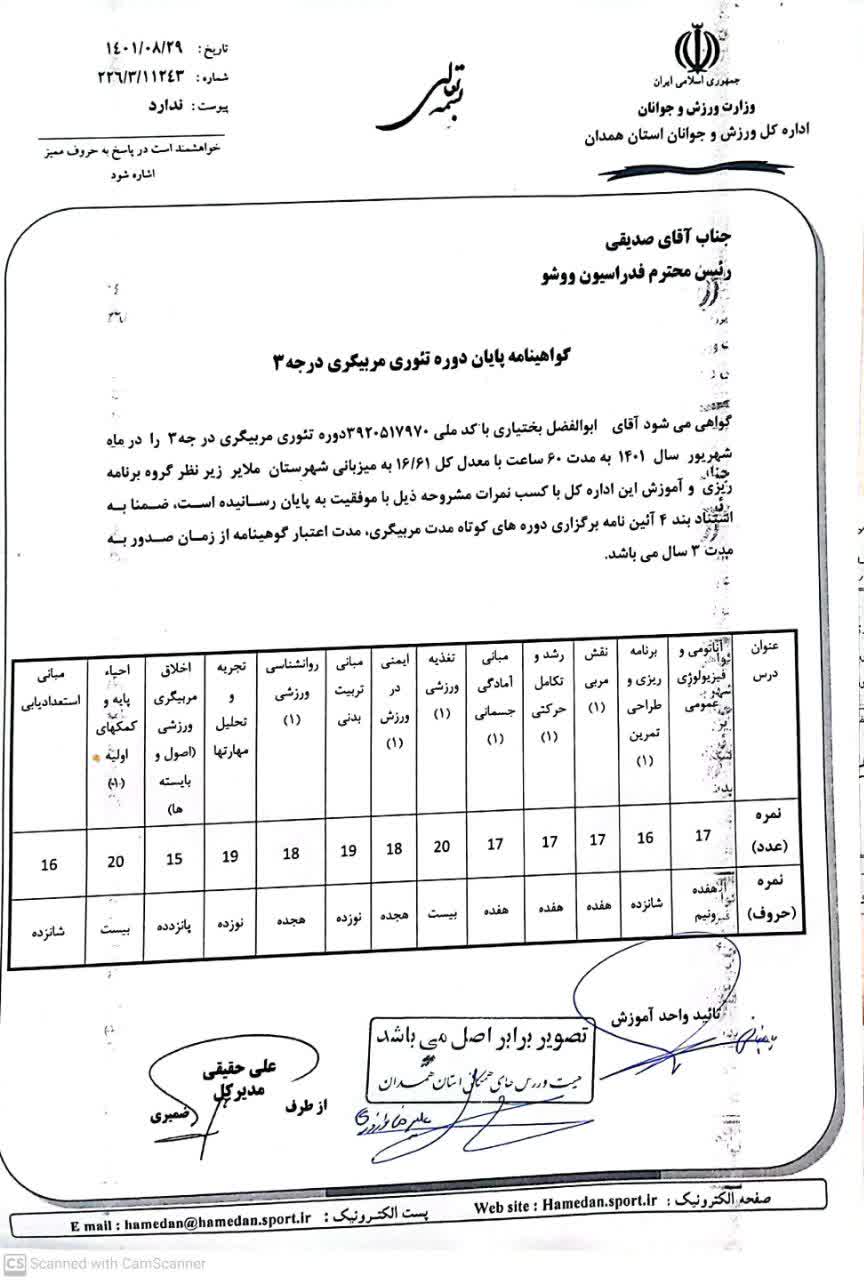 جمهوری اسلامی ایران
وزارت ورزش و جوانان
اداره کل ورزش و جوانان استان همدان
بسمه تعالی
تاریخ: ۱۴۰۱/۰۸/۲۹
شماره: ۲۲۶/۳/۱۱۲۴۳
پیوست: ندارد
خواهشمند است در پاسخ به حروف ممیز
اشاره شود
جناب آقای صدیقی
رئیس محترم فدراسیون ووشو
گواهینامه پایان دوره تئوری مربیگری درجه ۳
گواهی می شود آقای ابوالفضل بختیاری با کد ملی ۳۹۲۰۵۱۷۹۷۰دوره تئوری مربیگری درجه ۳ را در ماه
شهریور سال ۱۴۰۱ به مدت ۶۰ ساعت با معدل کل ۱۶/۶۱ به میزبانی شهرستان ملایر زیر نظر گروه برنامه
ریزی و آموزش این اداره کل با کسب نمرات مشروحه ذیل با موفقیت به پایان رسانیده است، ضمنا به
استناد بند ۴ آئین نامه برگزاری دوره های کوتاه مدت مربیگری، مدت اعتبار گوهینامه از زمان صدور به
مدت ۳ سال می باشد.
عنوان درس | آناتومی و فیزیولوژی عمومی | برنامه ریزی و طراحی تمرین (۱) | نقش مربی (۱) | رشد و تکامل حرکتی (۱) | مبانی آمادگی جسمانی (۱) | تغذیه ورزشی (۱) | ایمنی در ورزش (۱) | مبانی تربیت بدنی | روانشناسی ورزشی (۱) | تجزیه و تحلیل مهارتها | اخلاق مربیگری ورزشی (اصول و بایسته ها) | احیاء پایه و کمکهای اولیه (۱) | مبانی استعدادیابی
نمره (عدد) | 17 | 16 | 17 | 17 | 17 | 20 | 18 | 19 | 18 | 19 | 15 | 20 | 16
نمره (حروف) | هفده | شانزده | هفده | هفده | هفده | بیست | هجده | نوزده | هجده | نوزده | پانزدده | بیست | شانزده
تائید واحد آموزش
تصویر برابر اصل می باشد
هیئت ورزش های همگانی استان همدان
علی حقیقی
مدیر کل
از طرف ضمیری
صفحه الکترونیک : Web site : Hamedan.sport.ir
پست الکترونیک : E mail : hamedan@hamedan.sport.ir
CS Scanned with CamScanner